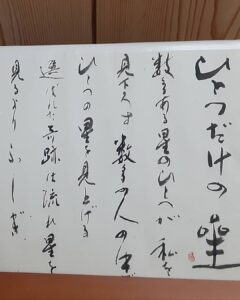 ひとつだけの星
数ある星のひとつが私を
見てる 数多の人の中
ひとつの星を見上げる
選ばれた奇跡は流れ星を
見るよりふしぎ